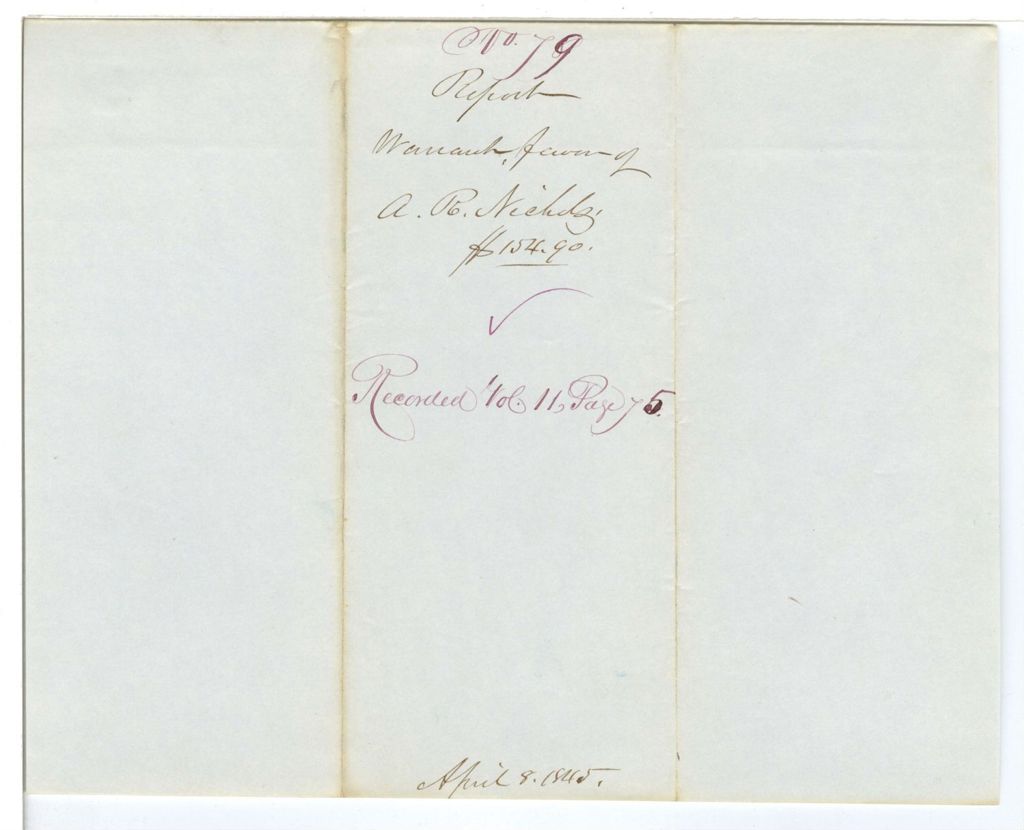 No. 79
Report
Warrant, favor of
A. R. Nichols,
$154.90.
Recorded Vol. 11, Page 75.
April 8. 1845.